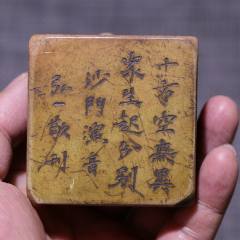 十方空無異
衆生起分别
沙門演音
弘一敬刊